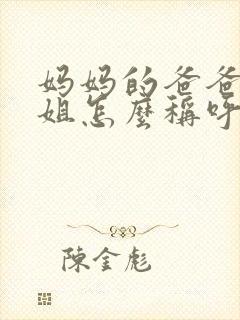 妈妈的爸爸
姐怎麼稱呼
陳金彪